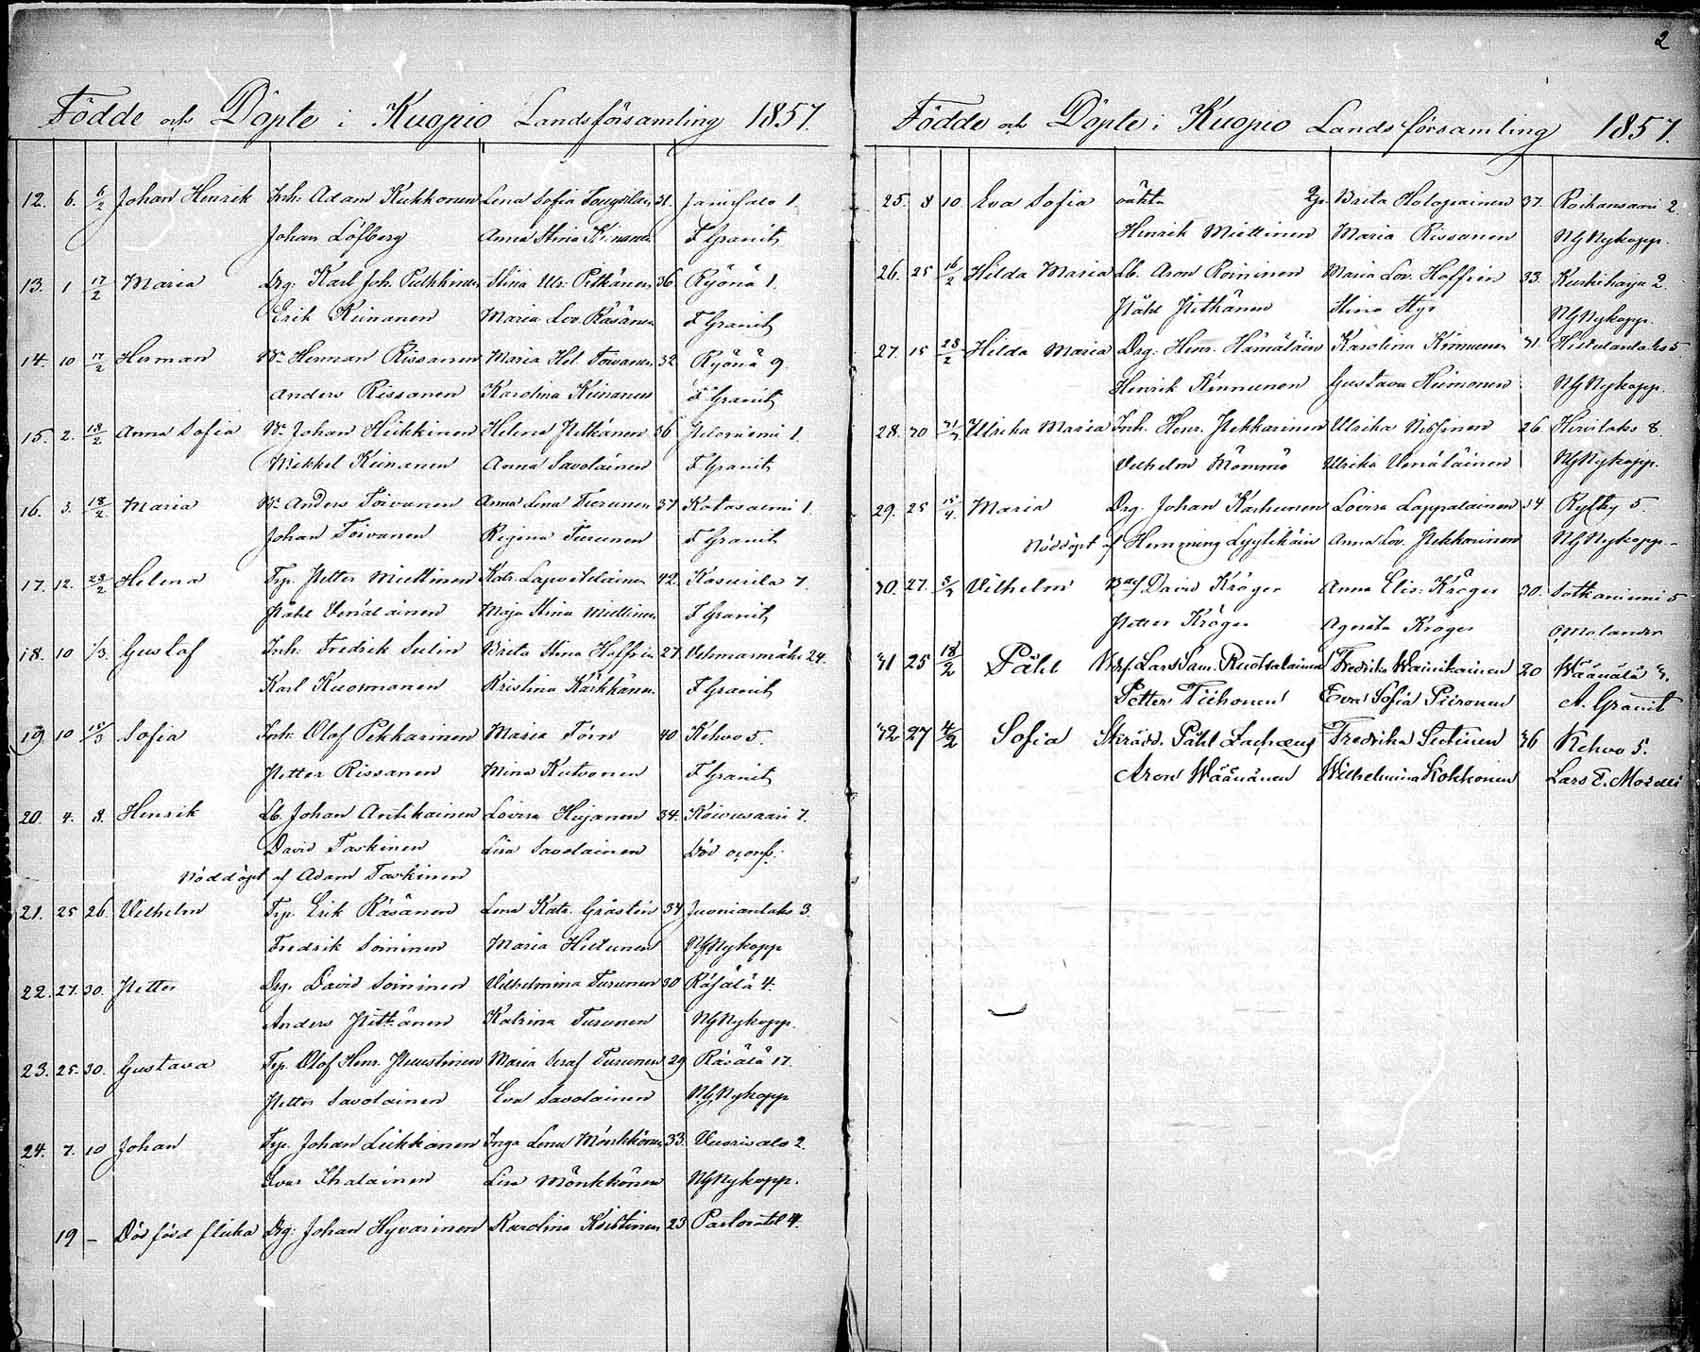 2
Födde och Döpte i Kuopio Landsförsamling 1857.
12. 6. 6/2 Johan Henrik Inh: Adam Kukkonen Lena Sofia 31. 1.
Johan Löfberg Anna Stina F Granit
13. 1 17/2 Maria Drg: Karl Joh. Pulkkinen Stina Ulr: Pitkänen 36 Ryönä 1.
Erik Keinanen Maria Lov. Räsänen F Granit
14. 10 17/2 Herman Bn Herman Rissanen Maria Hel Toivanen 32 Ryönä 9.
Anders Rissanen Karolina Keinanen F Granit
15. 2. 18/2 Anna Sofia Bn Johan Heikkinen Helena Pitkänen 36 1.
Mikkel Keinanen Anna Savolainen F Granit
16. 3. 18/2 Maria Bn Anders Toivanen Anna Lena Tierunen 37 Kotasaemi 1.
Johan Toivanen Regina Turunen F Granit
17. 12. 23/2 Helena Trp. Petter Miettinen Katr. 42. Kasurila 7.
Påhl Venäläinen Maja Stina Miettinen F Granit
18. 10 1/3 Gustaf Inh. Fredrik Sutin Brita Stina Hoffrin 27. Vehmasmäki 24.
Karl Kuosmanen Kristina Kärkkäinen F Granit
19. 10 15/3 Sofia Inh. Olof Pekkarinen Maria Törn 40 Kehvo 5.
Petter Rissanen Mina Kutvonen F Granit
20. 4. 8. Henrik Lb. Johan Antikainen Lovisa Hujanen 34. Koivusaari 7.
David Taskinen Lisa Savolainen Död
Nöddöpt af Adam Taskinen
21. 25 26. Vilhelm Trp. Erik Räsänen Lena Katr. Gråsten 34 Juonianlaks 3.
Fredrik Soininen Maria Hutunen NG Nykopp
22. 27. 30. Petter Drg. David Soininen Vilhelmina Turunen 30 Räsälä 4.
Anders Pitkänen Katrina Turunen NG Nykopp.
23. 25. 30. Gustava Trp. Olof Henr. Puustinen Maria Seraf Turunen 29 Räsälä 17.
Petter Savolainen Eva Savolainen NG Nykopp
24. 7. 10 Johan Trp. Johan Liikkanen Inga Lena Mönkkönen 33. Vuorisalo 2.
Ivar Ihalainen Lisa Mönkkönen NG Nykopp.
19 – Död född flicka Drg: Johan Hyvärinen Karolina Koistinen 23 4.
Födde och Döpte i Kuopio Landsförsamling 1857.
25. 8 10 Eva Sofia oäkta Pg. Brita Holopainen 37. Roikansaari 2.
Henrik Miettinen Maria Rissanen NG Nykopp.
26. 25 16/2 Hilda Maria Lb. Aron Roininen Maria Lov. Hoffren 33. Kurkiharju 2.
Påhl Pitkänen Stina NG Nykopp.
27. 15 23/2 Hilda Maria Drg: Henr. Hämäläin Karolina Kinnunen 31. Hirvilanlaks 5
Henrik Kinnunen Gustava Heimonen NG Nykopp.
28. 30 31/3 Ulrika Maria Inh. Henr. Pekkarinen Ulrika Nissinen 26 Hirvilaks 8.
Vilhelm Mömmö Ulrika Venäläinen NG Nykopp.
29. 25 15/4. Maria Drg. Johan Karhunen Lovisa Lappalainen 34 Rytky 5.
Nöddöpt af Hemming Lyytikäin Anna Lov. Pekkarinen NG Nykopp.
30. 27. 3/3 Vilhelm David Kröger Anna Elis: Kröger 30. Sotkaniemi 5
Petter Kröger Agneta Kröger Molander
31 25 18/2 Påhl Lars Sam. Ruotsalainen Fredrika Wainikainen 20 Wäänälä 3.
Petter Tiihonen Eva Sofia Piironen A. Granit
32 27 4/2 Sofia Skrädd. Påhl Lachæus Fredrika Sutinen 36 Kehvo 5.
Aron Wäänänen Wilhelmina Kokkonen Lars E.